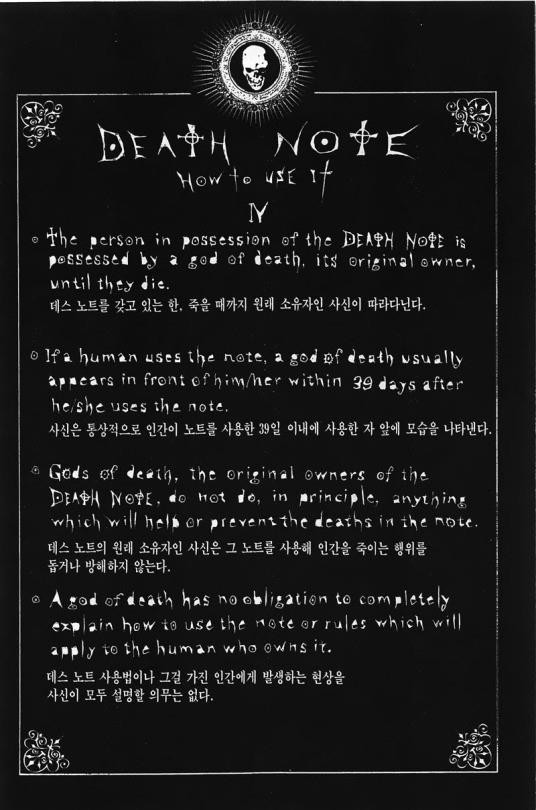 DEATH NOTE
HOW to USE It
IV
The person in possession of the DEATH NOTE is
possessed by a god of death, its original owner,
until they die.
데스 노트를 갖고 있는 한, 죽을 때까지 원래 소유자인 사신이 따라다닌다.
If a human uses the note, a god of death usually
appears in front of him/her within 39 days after
he/she uses the note.
사신은 통상적으로 인간이 노트를 사용한 39일 이내에 사용한 자 앞에 모습을 나타낸다.
Gods of death, the original owners of the
DEATH NOTE, do not do, in principle, anything
which will help or prevent the deaths in the note.
데스 노트의 원래 소유자인 사신은 그 노트를 사용해 인간을 죽이는 행위를
돕거나 방해하지 않는다.
A god of death has no obligation to completely
explain how to use the note or rules which will
apply to the human who owns it.
데스 노트 사용법이나 그걸 가진 인간에게 발생하는 현상을
사신이 모두 설명할 의무는 없다.